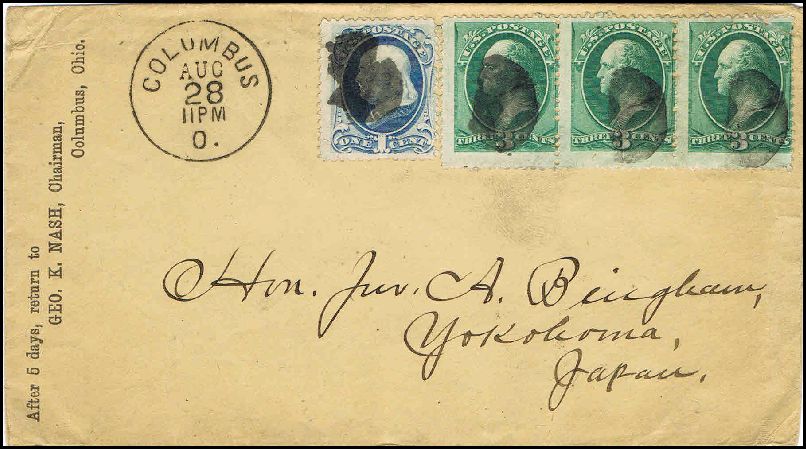 COLUMBUS
AUG
28
11PM
O.
U.S. POSTAGE
ONE 1 CENT
U.S. POSTAGE
THREE 3 CENTS
U.S. POSTAGE
THREE 3 CENTS
U.S. POSTAGE
THREE 3 CENTS
After 5 days, return to
GEO. K. NASH, Chairman,
Columbus, Ohio.
Hon. Jno. A. Bingham,
Yokohoma,
Japan.